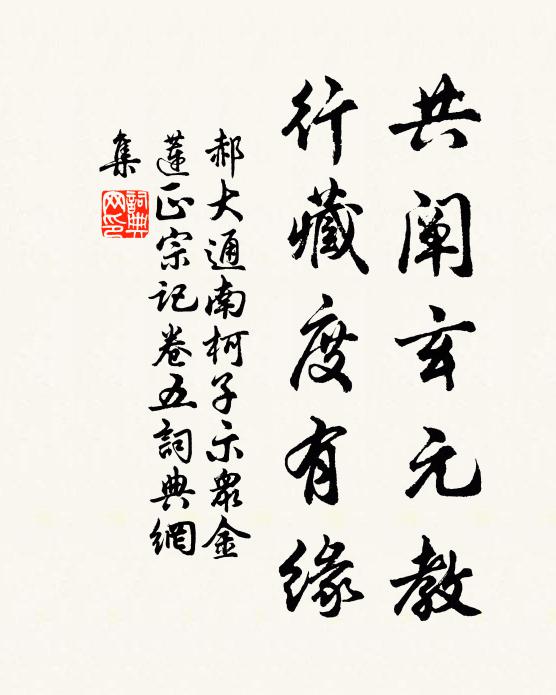 共阐玄元教
行藏度有缘
郝大通南柯子示眾金
蓮正宗记卷五詞典網
集
詞典
网印